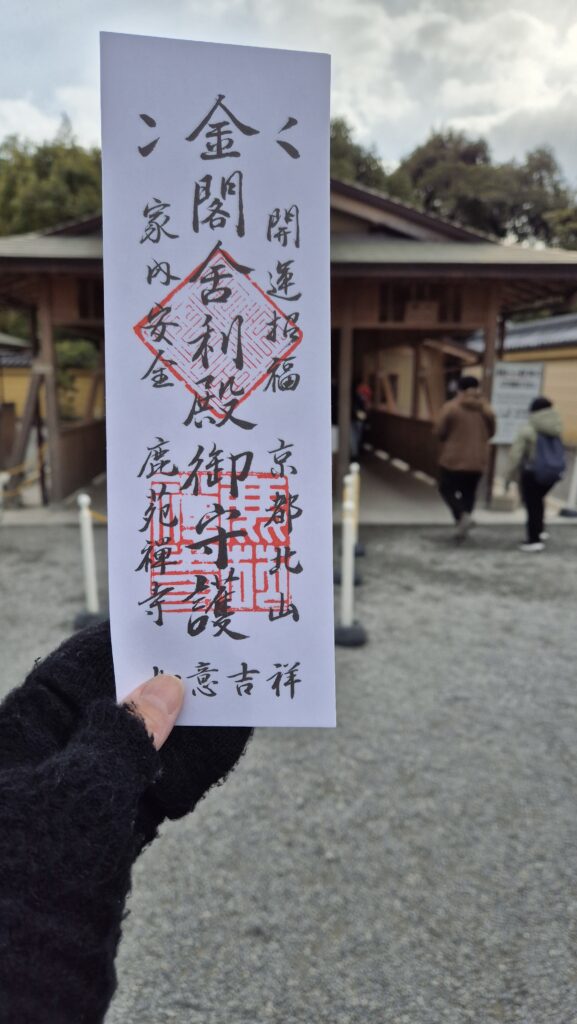 開運招福
京都北山
金閣舎利殿御守護
家内安全
鹿苑禅寺
意吉祥